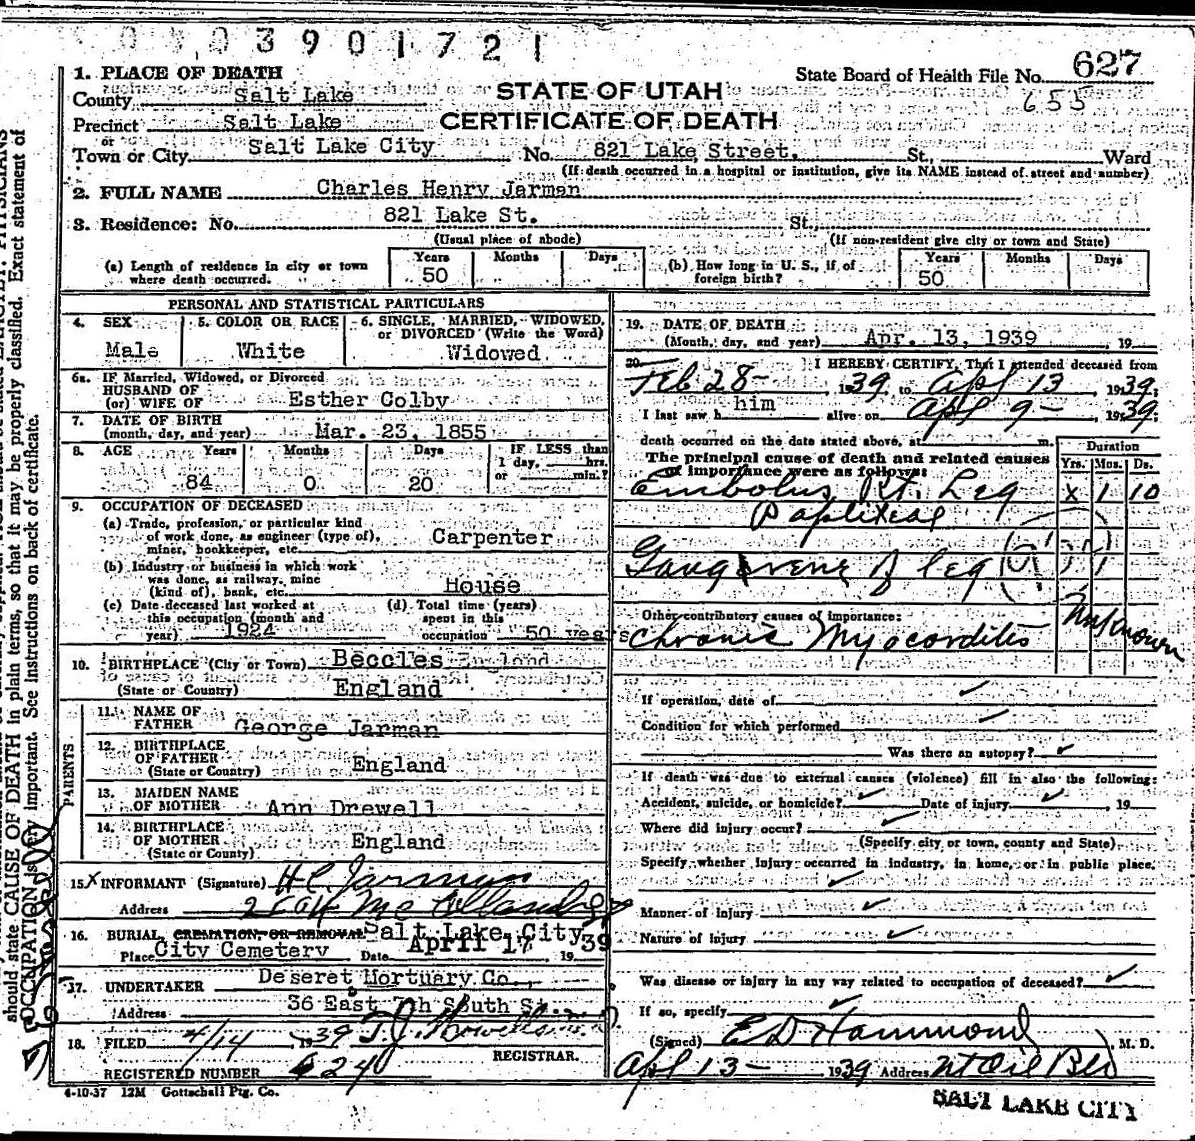 0 3 0 3 9 0 1 7 2 1
State Board of Health File No. 627
653
STATE OF UTAH
CERTIFICATE OF DEATH
1. PLACE OF DEATH
County Salt Lake
Precinct Salt Lake
or
Town or City Salt Lake City No. 821 Lake Street. St., Ward
(If death occurred in a hospital or institution, give its NAME instead of street and number)
2. FULL NAME Charles Henry Jarman
3. Residence: No. 821 Lake St. St.
(Usual place of abode) (If non-resident give city or town and State)
(a) Length of residence in city or town where death occurred. Years 50 Months Days
(b) How long in U. S., if of foreign birth? Years 50 Months Days
PERSONAL AND STATISTICAL PARTICULARS
4. SEX Male
5. COLOR OR RACE White
6. SINGLE, MARRIED, WIDOWED, or DIVORCED (Write the Word) Widowed
6a. IF Married, Widowed, or Divorced
HUSBAND OF
(or) WIFE OF Esther Colby
7. DATE OF BIRTH
(month, day, and year) Mar. 23, 1855
8. AGE Years 84 Months 0 Days 20 IF LESS than 1 day, hrs. or min.?
9. OCCUPATION OF DECEASED
(a) Trade, profession, or particular kind
of work done, as engineer (type of),
miner, bookkeeper, etc. Carpenter
(b) Industry or business in which work
was done, as railway, mine
(kind of), bank, etc. House
(c) Date deceased last worked at
this occupation (month and
year) 1924
(d) Total time (years)
spent in this
occupation 50 years
10. BIRTHPLACE (City or Town) Beccles England
(State or Country) England
PARENTS
11. NAME OF
FATHER George Jarman
12. BIRTHPLACE
OF FATHER
(State or Country) England
13. MAIDEN NAME
OF MOTHER Ann Drewell
14. BIRTHPLACE
OF MOTHER
(State or County) England
15 X INFORMANT (Signature) H C Jarman
Address
16. BURIAL, CREMATION, OR REMOVAL Salt Lake City
Place City Cemetery Date April 17 1939
17. UNDERTAKER Deseret Mortuary Co.,
Address 36 East 7th South St.
18. FILED 4/14, 1939
REGISTRAR.
REGISTERED NUMBER 624
4-10-37 12M Gottschall Ptg. Co.
19. DATE OF DEATH
(Month, day, and year) Apr. 13, 1939 19
20. I HEREBY CERTIFY, That I attended deceased from
Feb 28- 1939, to Apl 13 1939.
I last saw h him alive on Apl 9- 1939.
death occurred on the date stated above, at m.
The principal cause of death and related causes
of importance were as follows:
Duration
Yrs. Mos. Ds.
Embolus Rt. Leg x 1 10
Popliteal
Gangrene of leg
Other contributory causes of importance:
Chronic Myocarditis Unknown
If operation, date of
Condition for which performed
Was there an autopsy?
If death was due to external causes (violence) fill in also the following:
Accident, suicide, or homicide? Date of injury, 19
Where did injury occur?
(Specify city or town, county and State)
Specify whether injury occurred in industry, in home, or in public place.
Manner of injury
Nature of injury
Was disease or injury in any way related to occupation of deceased?
If so, specify
(Signed) E D Hammond, M. D.
Apl 13- 1939 Address
SALT LAKE CITY
should state CAUSE OF DEATH in plain terms, so that it may be properly classified. Exact statement of
OCCUPATION is very important. See instructions on back of certificate.